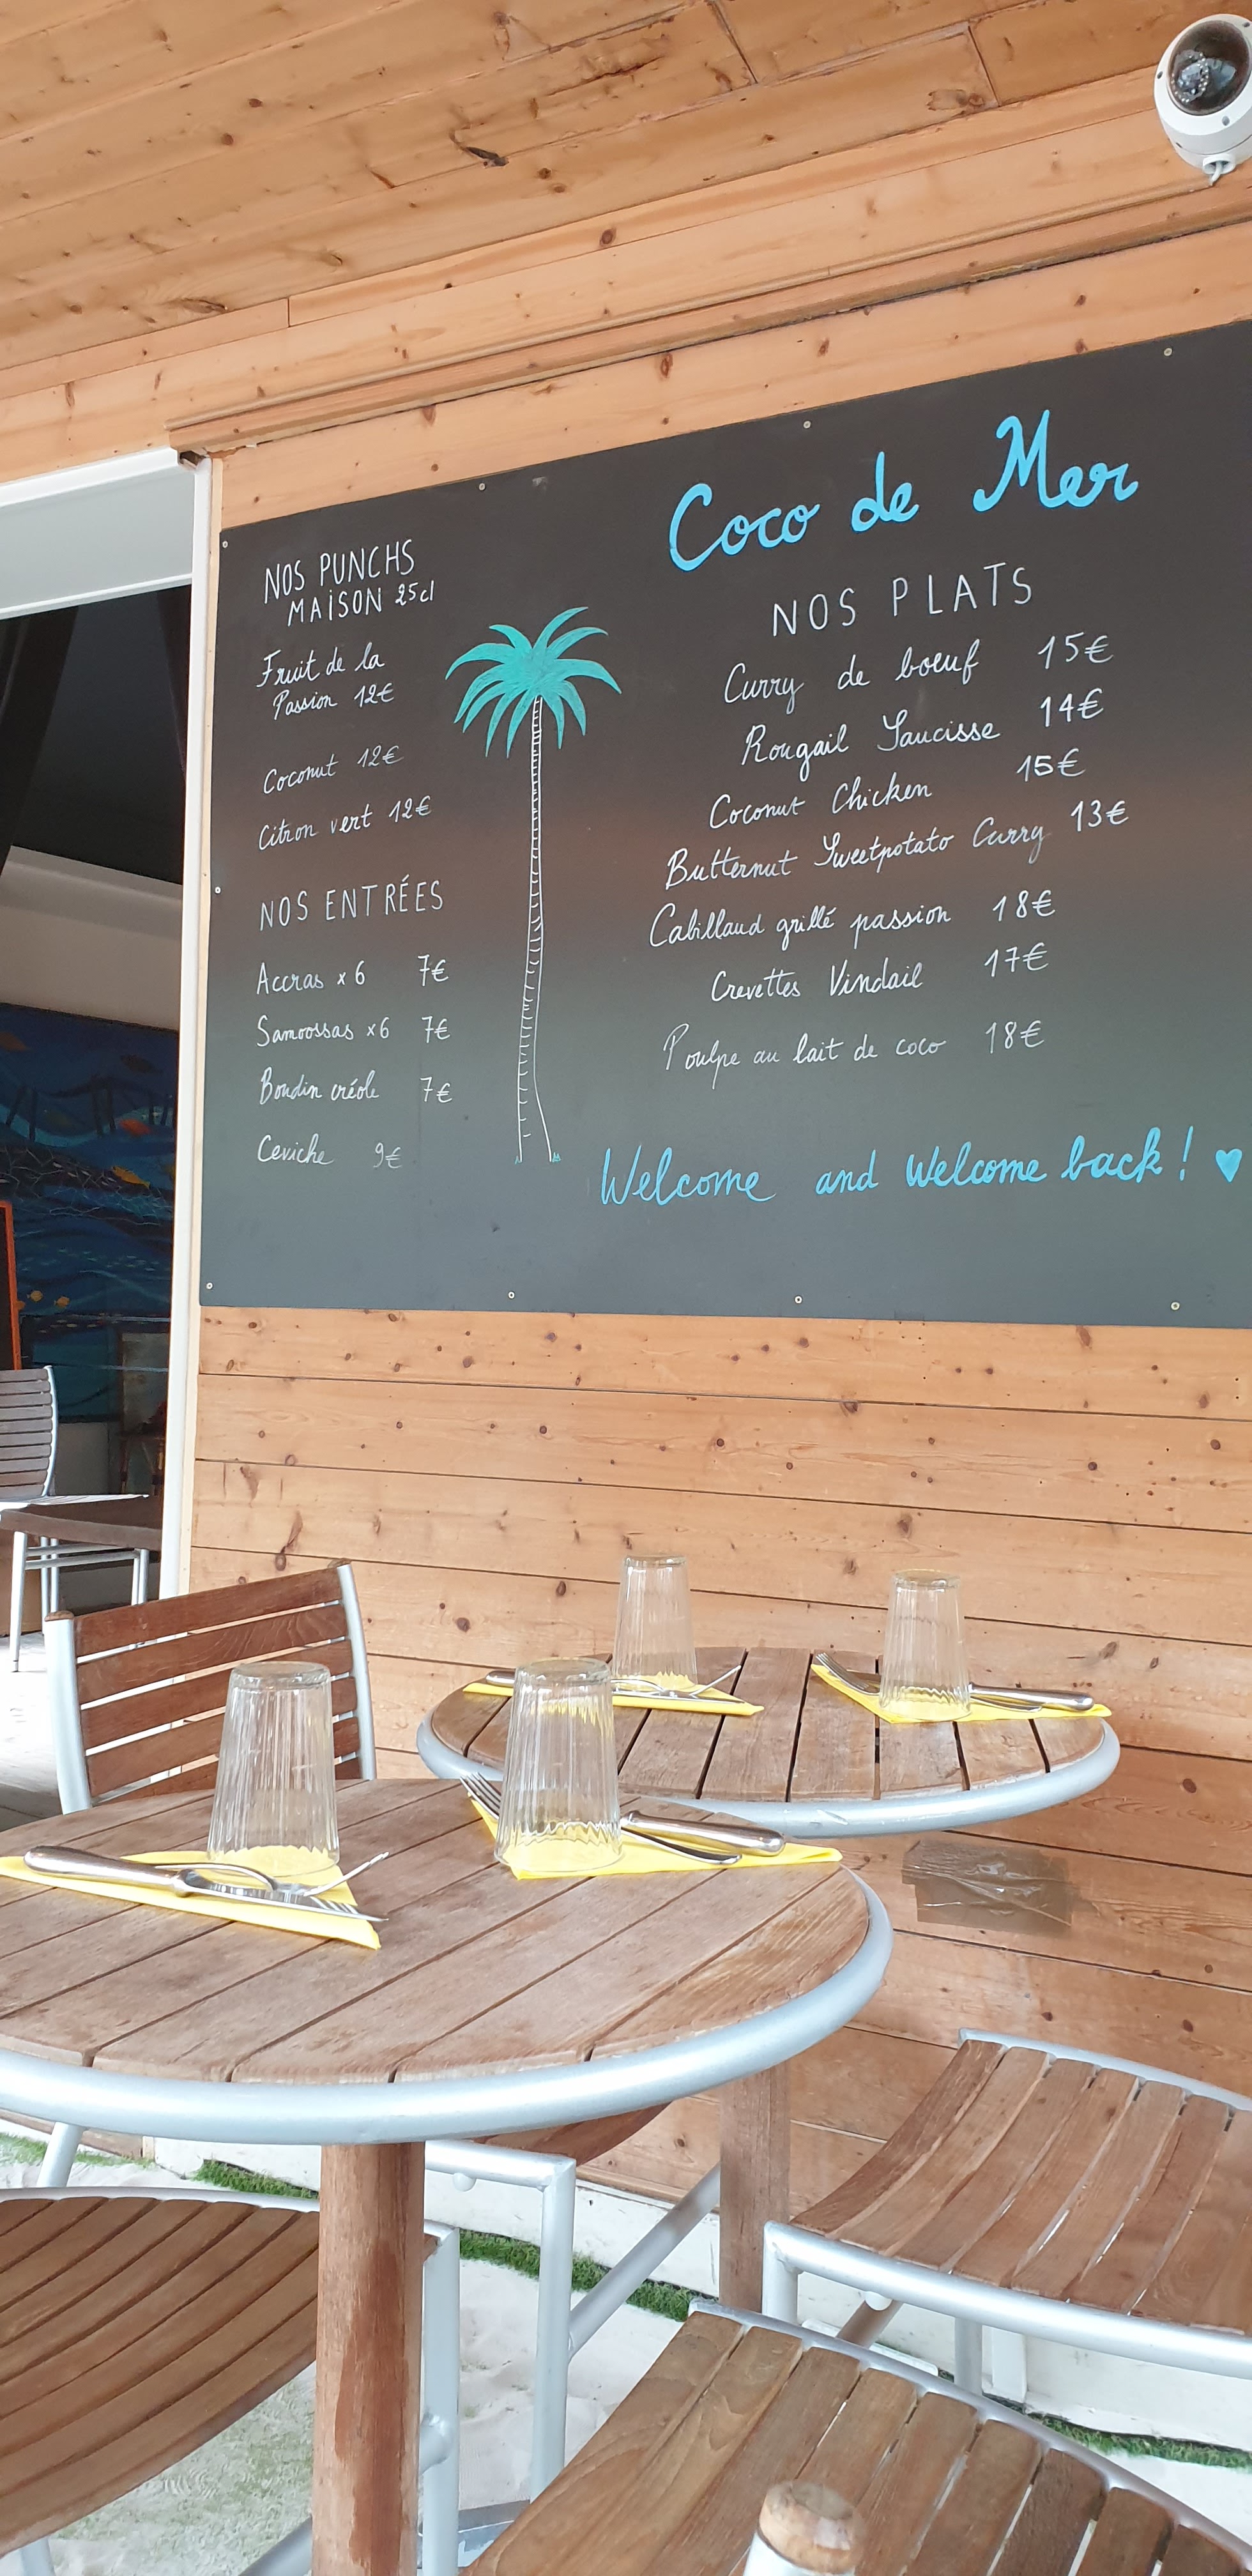 Coco de Mer
NOS PUNCHS
MAISON 25cl
Fruit de la
Passion 12€
Coconut 12€
Citron vert 12€
NOS ENTRÉES
Accras x 6 7€
Samoossas x6 7€
Boudin créole 7€
Ceviche 9€
NOS PLATS
Curry de boeuf 15€
Rougail Saucisse 14€
Coconut Chicken 15€
Butternut Sweetpotato Curry 13€
Cabillaud grillé passion 18€
Crevettes Vindail 17€
Poulpe au lait de coco 18€
Welcome and Welcome back! ♥